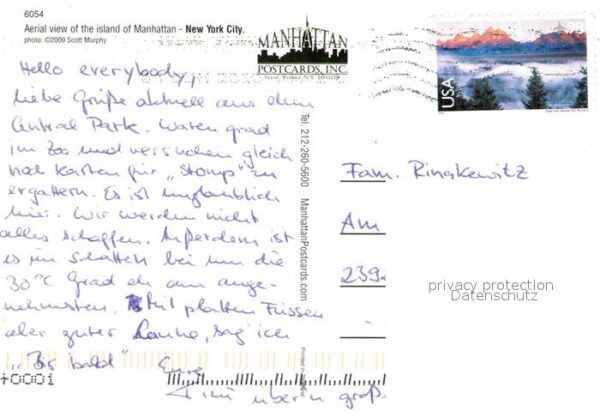 6054
Aerial view of the island of Manhattan - New York City.
photo: ©2009 Scott Murphy
MANHATTAN
POSTCARDS, INC
New York, NY 10009
USA
Hello everybody,
liebe Grüße aktuell aus dem
Central Park. Waren grad
im Zoo und versuchen gleich
noch Karten für „Stomp" zu
ergattern. Es ist unglaublich
hier. Wir werden nicht
alles schaffen. Außerdem ist
es im Schatten bei um die
30°C Grad eh am ange-
nehmsten. Mit platten Füssen
aber guter Laune, sag ich
„Bis bald" Eure
Tel. 212-260-5600 ManhattanPostcards.com
Fam. Ringkewitz
Am
239
privacy protection
Datenschutz
+0001